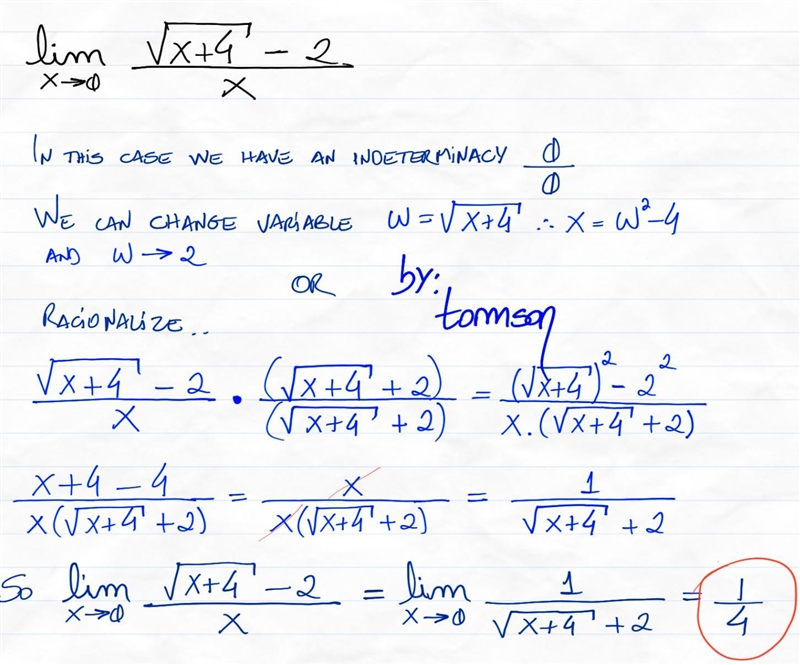 lim x→0 (√(x+4) - 2)/x
IN THIS CASE WE HAVE AN INDETERMINACY 0/0
WE CAN CHANGE VARIABLE W = √(x+4) ∴ x = W² - 4
AND W → 2
OR by:
RACIONALIZE.. tormson
(√(x+4) - 2)/x · (√(x+4) + 2)/(√(x+4) + 2) = ((√(x+4))² - 2²)/(x.(√(x+4) + 2))
(x+4-4)/(x(√(x+4) + 2)) = x/(x(√(x+4) + 2)) = 1/(√(x+4) + 2)
So lim x→0 (√(x+4) - 2)/x = lim x→0 1/(√(x+4) + 2) = 1/4